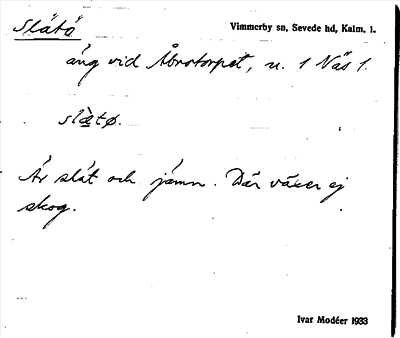 Slätä
Vimmerby sn, Sevede hd, Kalm. l.
äng vid Åbrotorpet, u. 1 Näs 1.
slæ̀tø.
Är slät och jämn. Där växer ej
skog.
Ivar Modéer 1933